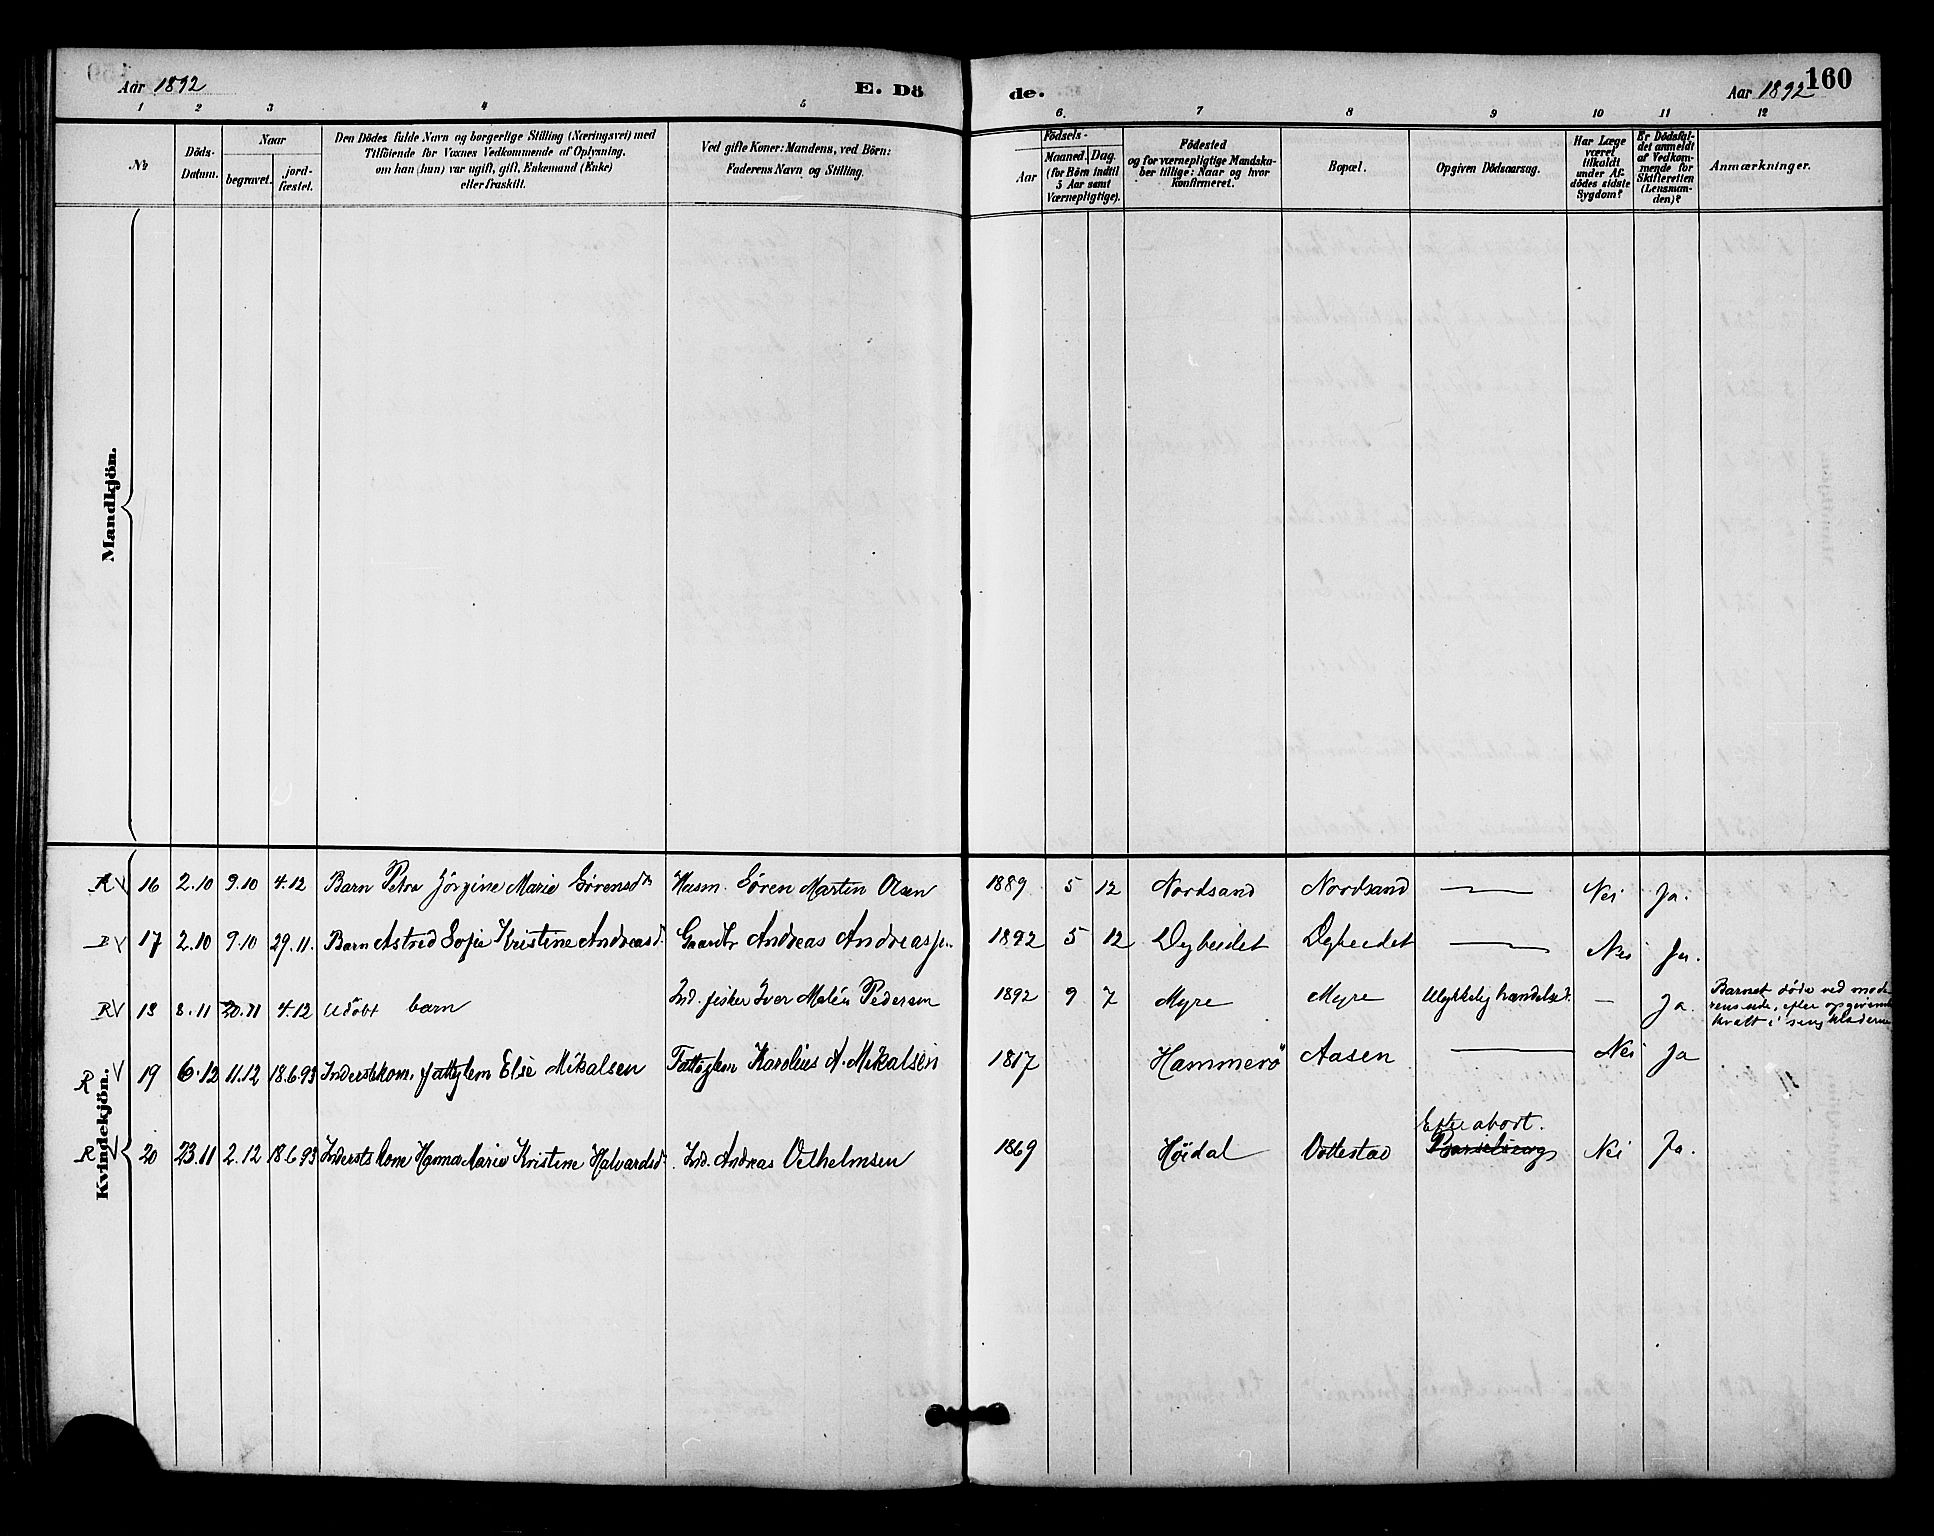 Aar 1892
E. Dö
de.
Aar 1892
160
1 2 3 4 5 6. 7 8 9 10 11 12
№
Döds-
Datum.
Naar
begravet.
jord-
fæstet.
Den Dödes fulde Navn og borgerlige Stilling (Næringsvei) med
Tilföiende for Voxnes Vedkommende af Oplysning.
om han (hun) var ugift, gift, Enkemand (Enke)
eller fraskilt.
Ved gifte Koner: Mandens, ved Börn:
Faderens Navn og Stilling.
Födsels-
Aar
Maaned. Dag.
(for Börn indtil
5 Aar samt
Værnepligtige).
Födested
og for værnepligtige Mandska-
ber tillige: Naar og hvor
Konfirmeret.
Bopæl.
Opgiven Dödsaarsag.
Har Læge
været
tilkaldt
under Af-
dödes sidste
Sygdom?
Er Dödsfal-
det anmeldt
af Vedkom-
mende for
Skifteretten
(Lensman-
den)?
Anmærkninger.
Mandkjön.
Kvindekjön.
R V 16 2.10 9.10 4.12 Barn Petra Jörgine Marie Sörensdtr Husm. Sören Martin Olsen 1889 5 12 Nordsand Nordsand — Nei Ja.
R V 17 2.10 9.10 29.11. Barn Astrid Sofie Kristine Andreasd. Gaardbr Andreas Andreassen 1892 5 12 Dybeidet Dybeidet — Nei Ja.
R V 18 8.11 20.11 4.12 Udöbt barn Ind. fisker Iver Pedersen 1892 9 7 Myre Myre Ulykkelig hændelse — Ja. Barnet döde ved mode
rens side, efter opgivende
kvalt i sengklæderne
R V 19 6.12 11.12 18.6.93 Inderstkone, fattiglem Else Mikalsen Fattiglem Karolius A. Mikalsen 1817 Hammerö Aasen — Nei Ja
R V 20 23.11 2.12 18.6.93 Inderst kone Hanna Marie Kristine Halvardsd. Ind. Andreas Vilhelmsen 1869 Höidal Vottestad Efter abort. Barselseng Nei Ja.